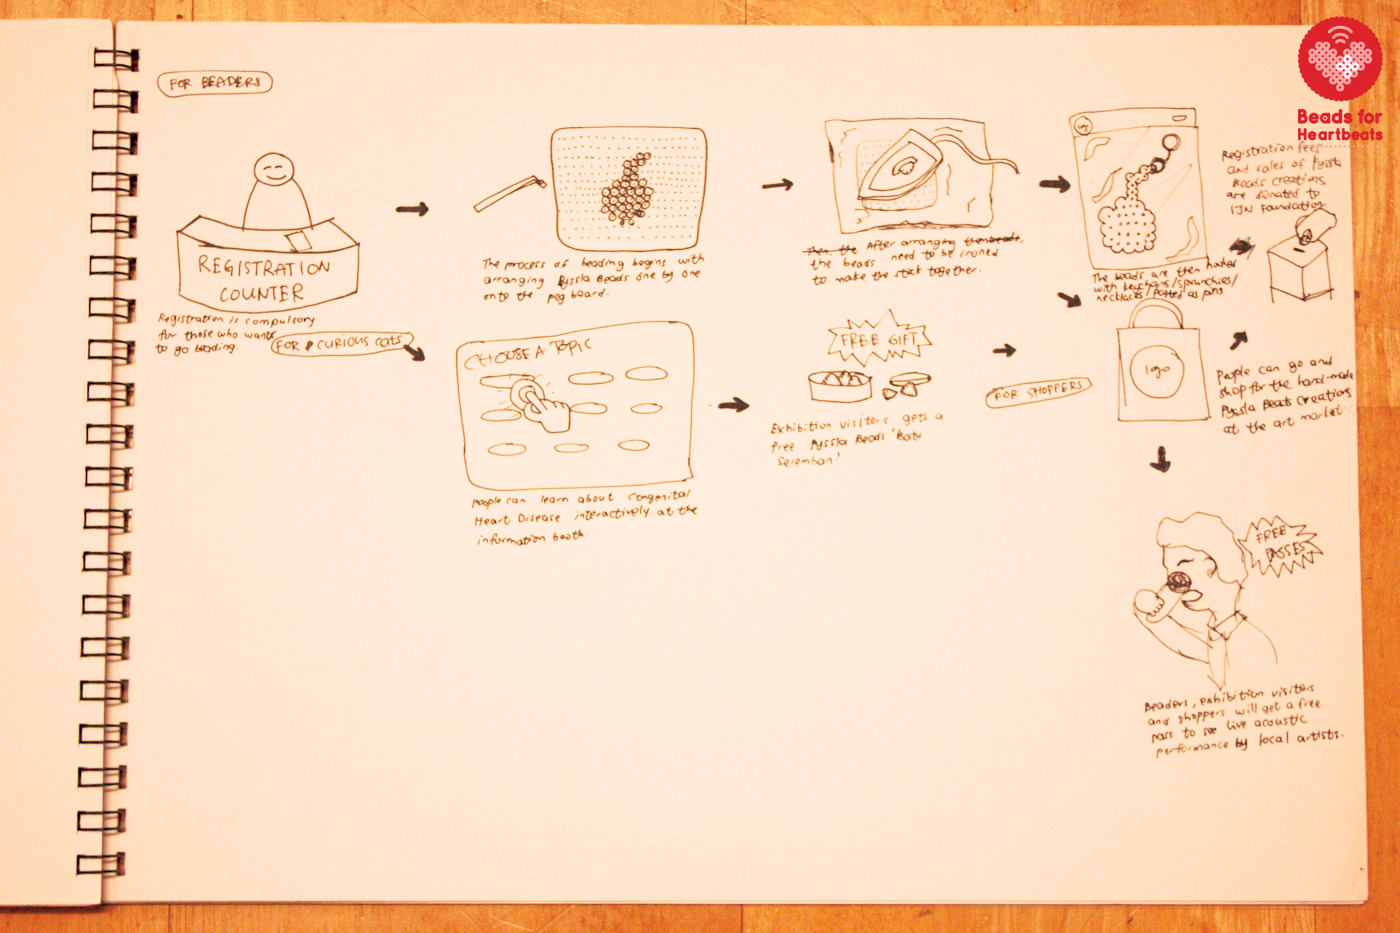 FOR BEADERS
REGISTRATION
COUNTER
Registration is compulsory
for those who wants
to go beading
The process of beading begins with
arranging Pyssla Beads one by one
onto the peg board.
Then, the After arranging
the beads need to be ironed
to make the stick together.
logo
The beads are then hooked
with keychains/sprunchies/
necklaces/potted as pins
Beads for
Heartbeats
Registration fees
and sales of Pyssla
Beads Creations
are donated to
IJN Foundation
FOR CURIOUS CATS
CHOOSE A TOPIC
People can learn about Congenital
Heart Disease interactively at the
information booth.
FREE GIFT
Exhibition visitors gets a
free Pyssla Beads 'Batu
Seremban'
FOR SHOPPERS
logo
People can go and
shop for the hand-made
Pyssla Beads Creations
at the art market.
FREE
PASSES
Beaders, exhibition visitors
and shoppers will get a free
pass to see live acoustic
performance by local artists.